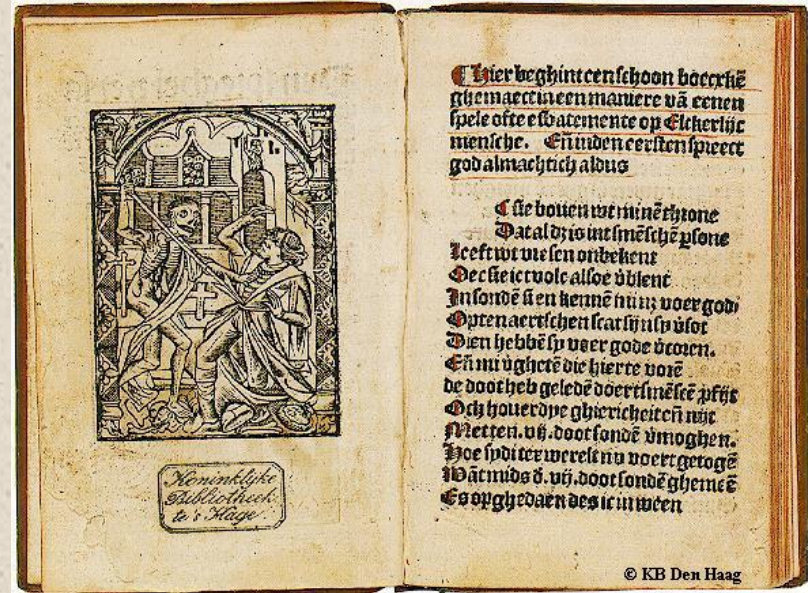 Koninklijke
Bibliotheek
te's Hage
¶ Hier beghint een schoon boecxkē
ghemaect in een maniere vā eenen
spele ofte esbatemente op Elckerlijc
mensche. Eñ inden eersten spreect
god almachtich aldus
¶ Ic sie bouen wt minē throne
Dat al dz is int smēschē psone
Leeft wt vresen onbekent
Oec sie ic tvolc alsoe vblent
In sondē si en kennē mi nz voer god
Opten aertschen scat sijn sy vsot
Dien hebbē sy voer gode vcoren.
Eñ mi vghetē die hier te vorē
de doot heb geledē doer tsmēscē pfijt
Och houerdye ghiericheit eñ nijt
Metten .vij. dootsondē vmoghen.
Hoe sydi ter werelt nu voert getogē
Wāt mids d. vij. dootsondē ghemeē
Es op ghedaen des ic in ween
© KB Den Haag